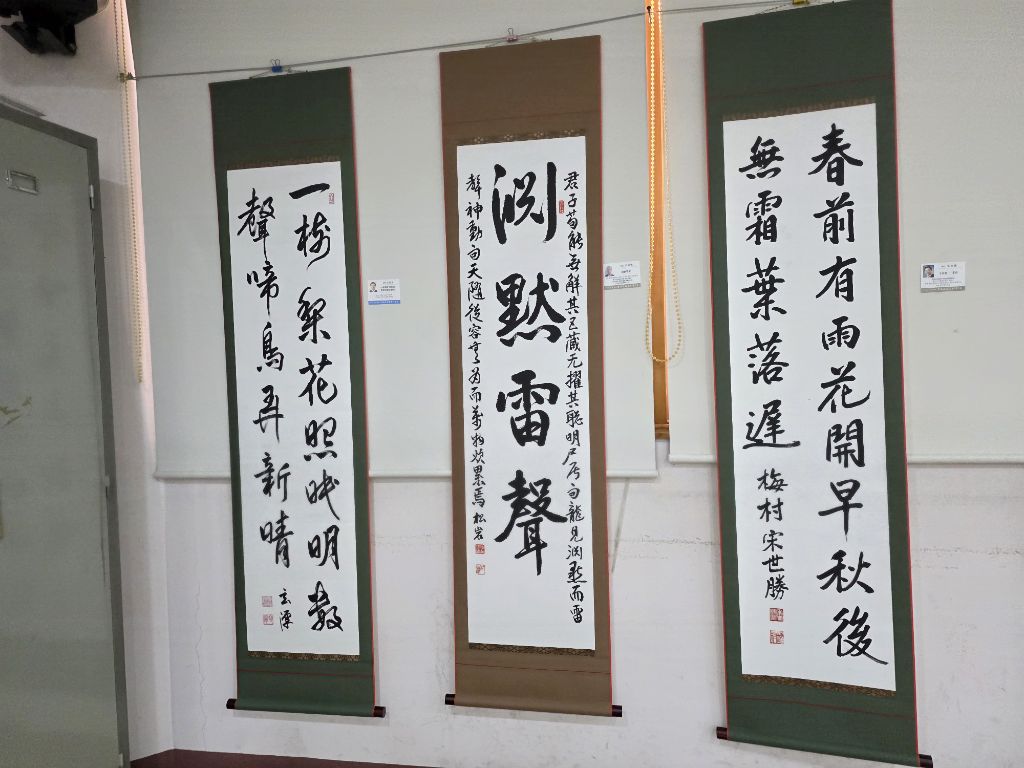 春前有雨花開早秋後
無霜葉落遲
梅村宋世勝
君子苟能無解其五藏无擢其聰明尸居而龍見淵默而雷
淵默雷聲
聲神動而天隨從容無為而萬物炊累焉 松岩
一樹梨花照眼明數
聲啼鳥弄新晴